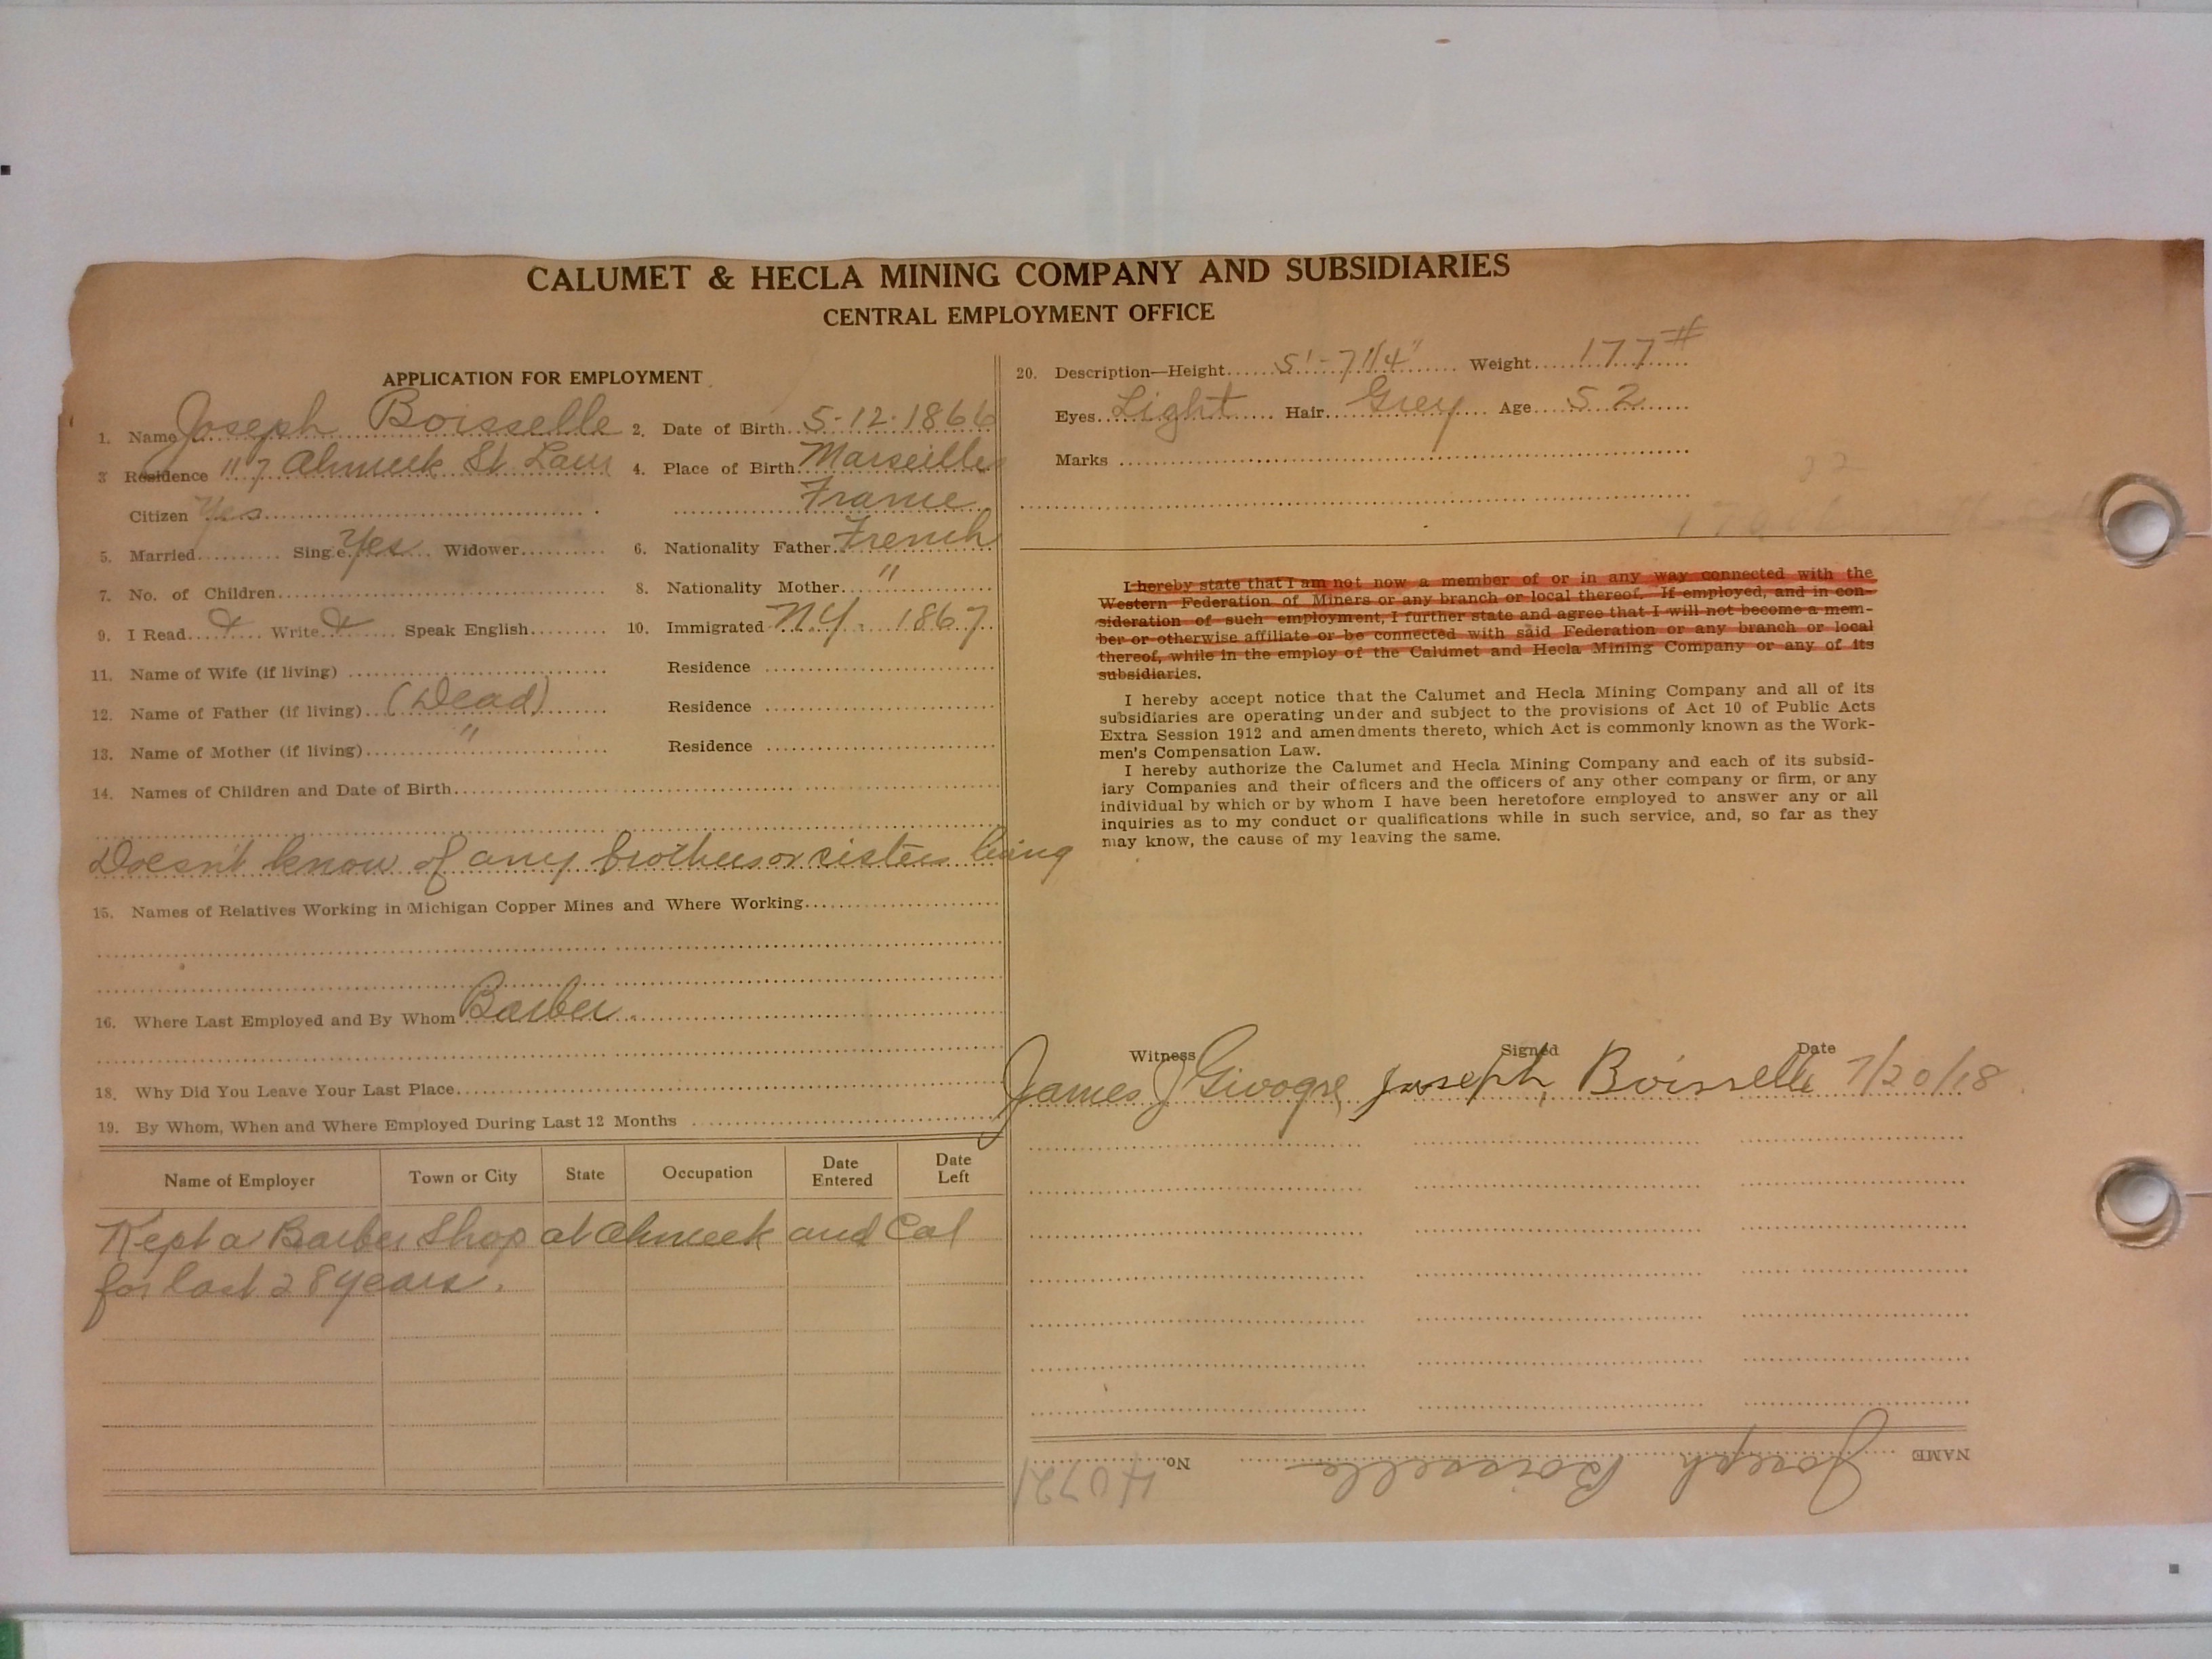 CALUMET & HECLA MINING COMPANY AND SUBSIDIARIES
CENTRAL EMPLOYMENT OFFICE
APPLICATION FOR EMPLOYMENT
1. Name Joseph Boisselle 2. Date of Birth 5-12-1866
3 Residence 117 Ahmeek St Laur 4. Place of Birth Marseille
France
Citizen Yes
5. Married Single Yes Widower 6. Nationality Father French
7. No. of Children 8. Nationality Mother "
9. I Read Write Speak English 10. Immigrated N.Y. 1867
11. Name of Wife (if living) Residence
12. Name of Father (if living) (Dead) Residence
13. Name of Mother (if living) " Residence
14. Names of Children and Date of Birth
Doesn't know of any brothers or sisters living
15. Names of Relatives Working in Michigan Copper Mines and Where Working
16. Where Last Employed and By Whom Barber
18. Why Did You Leave Your Last Place
19. By Whom, When and Where Employed During Last 12 Months
Name of Employer Town or City State Occupation Date Entered Date Left
Kept a Barber Shop at Ahmeek and Cal
for last 28 years.
20. Description—Height 5'-7 1/4" Weight 177#
Eyes Light Hair Grey Age 52
Marks
I hereby state that I am not now a member of or in any way connected with the
Western Federation of Miners or any branch or local thereof. If employed, and in con-
sideration of such employment, I further state and agree that I will not become a mem-
ber or otherwise affiliate or be connected with said Federation or any branch or local
thereof, while in the employ of the Calumet and Hecla Mining Company or any of its
subsidiaries.
I hereby accept notice that the Calumet and Hecla Mining Company and all of its
subsidiaries are operating under and subject to the provisions of Act 10 of Public Acts
Extra Session 1912 and amendments thereto, which Act is commonly known as the Work-
men's Compensation Law.
I hereby authorize the Calumet and Hecla Mining Company and each of its subsid-
iary Companies and their officers and the officers of any other company or firm, or any
individual by which or by whom I have been heretofore employed to answer any or all
inquiries as to my conduct or qualifications while in such service, and, so far as they
may know, the cause of my leaving the same.
Witness Signed Date
James J Givogre Joseph Boisselle 7/20/18
NAME Joseph Boisselle No. 40721